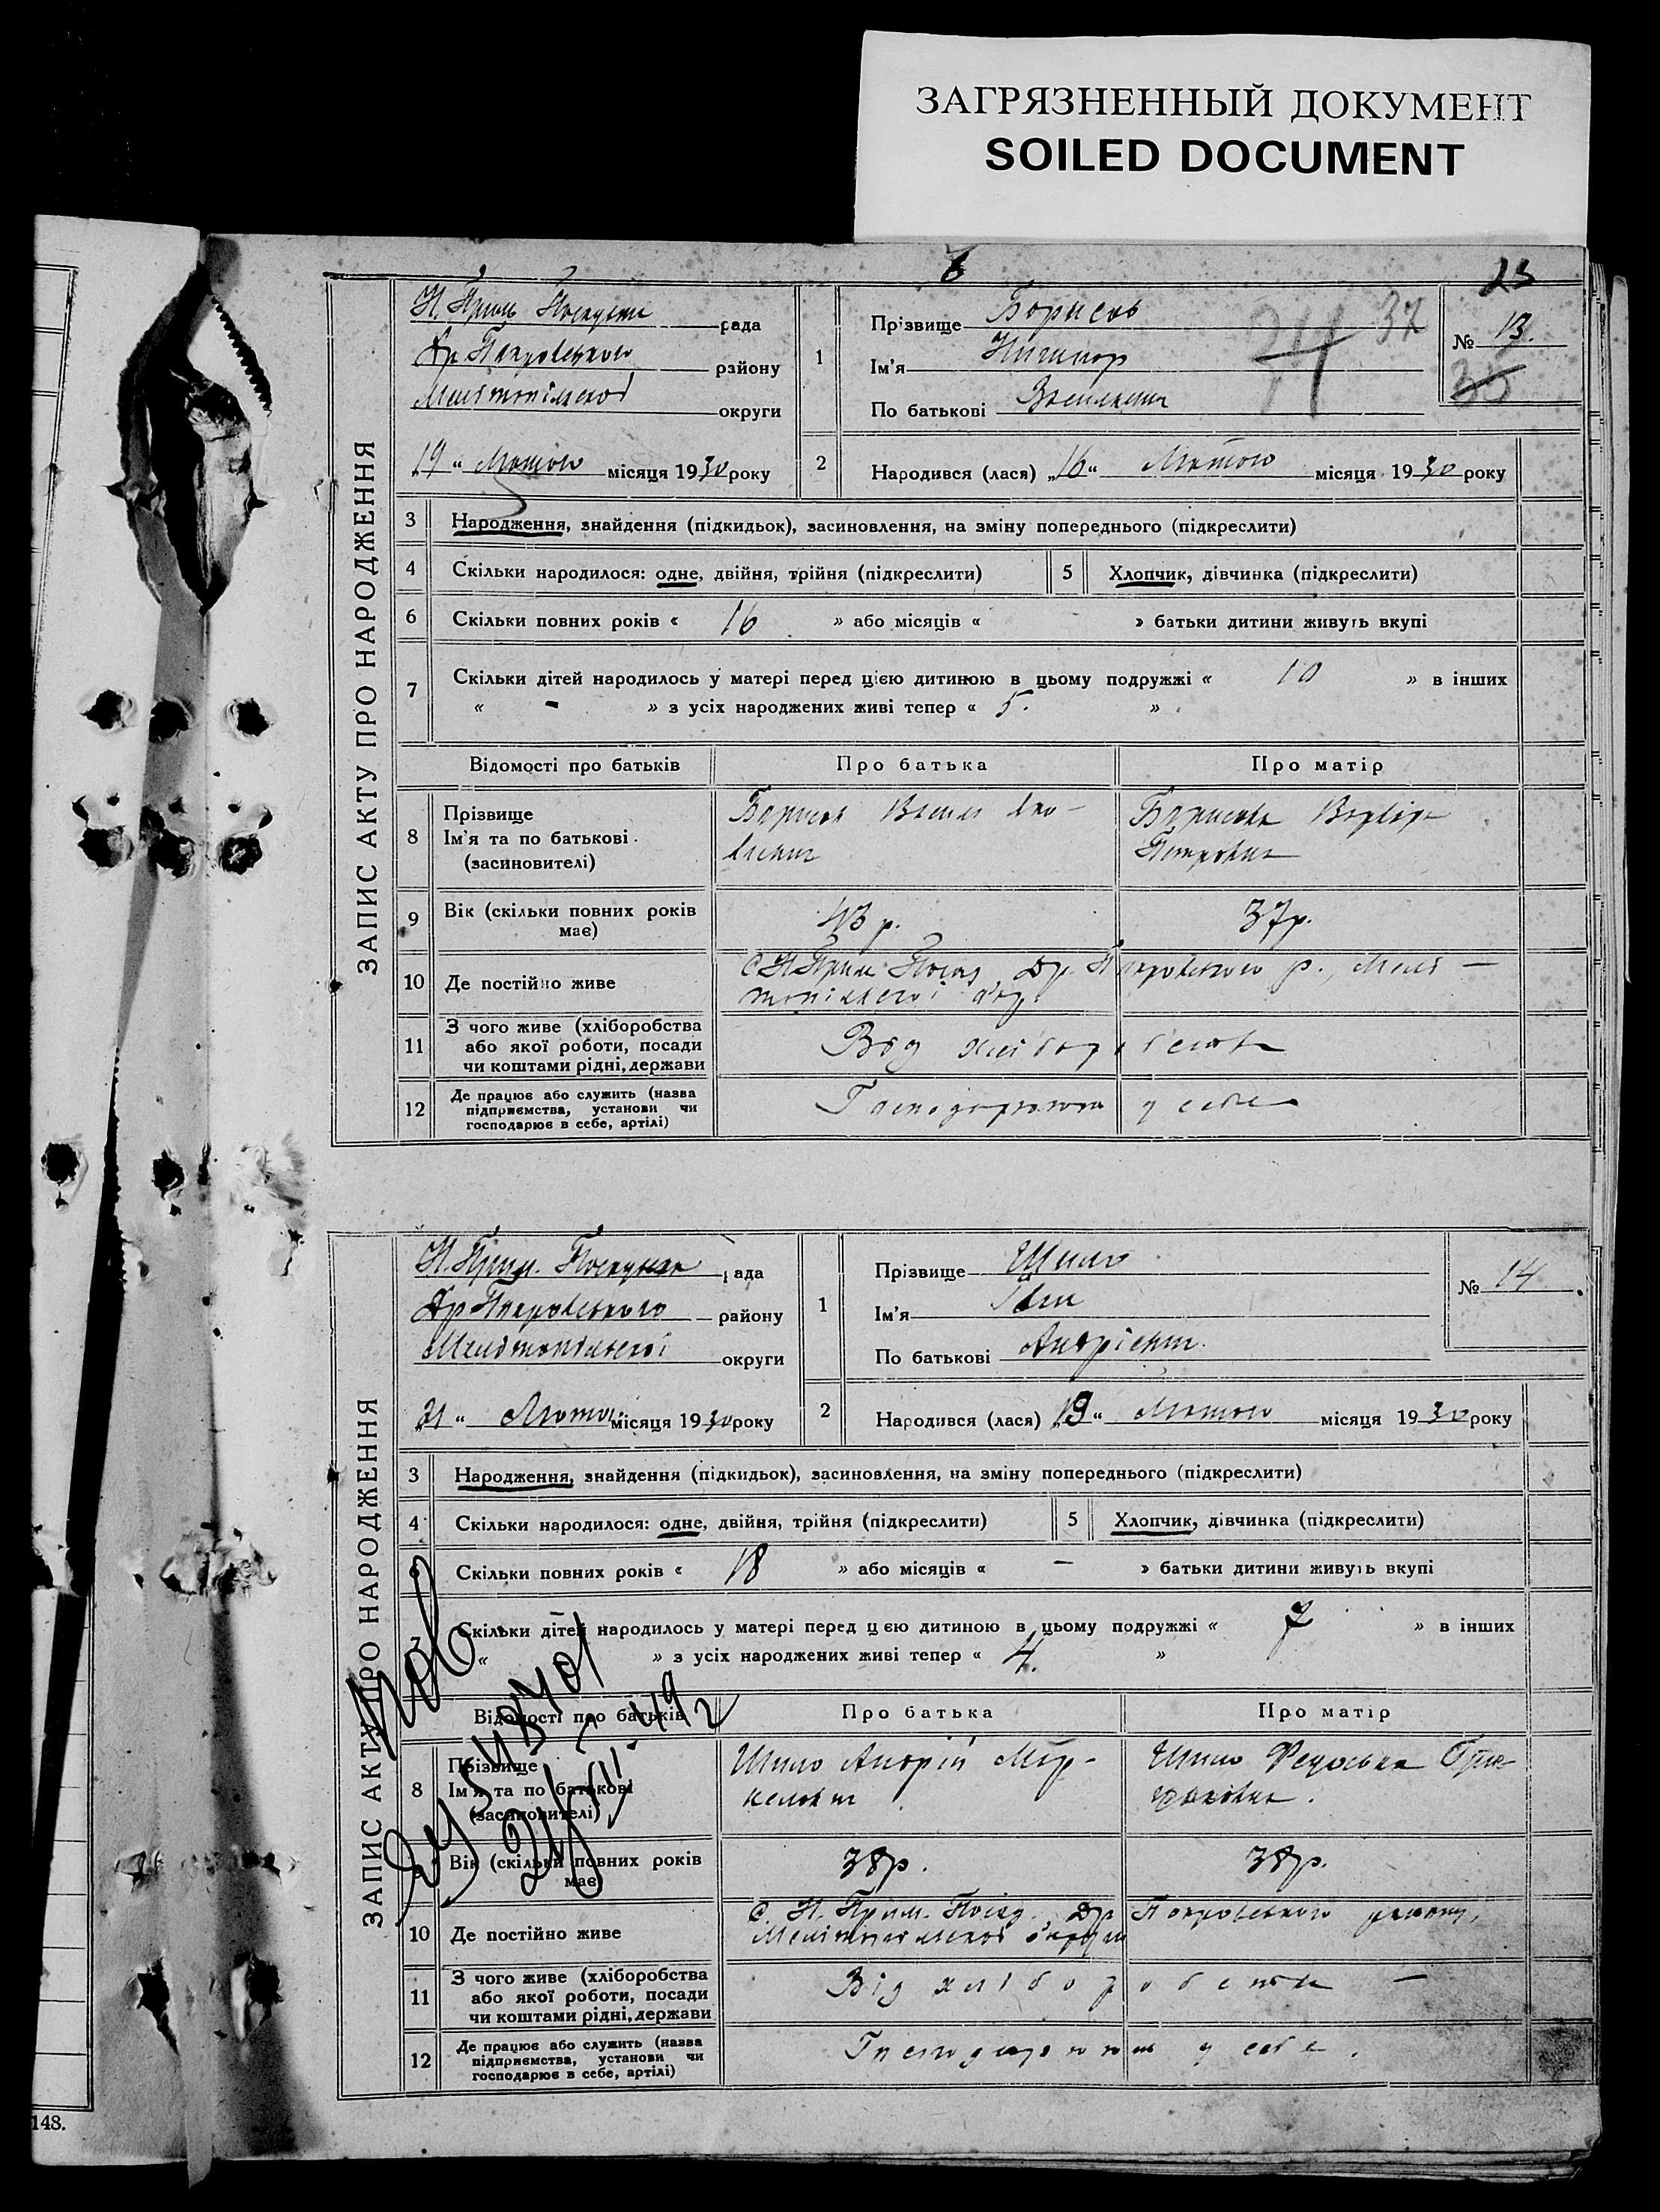 ЗАГРЯЗНЕННЫЙ ДОКУМЕНТ
SOILED DOCUMENT
6
23
ЗАПИС АКТУ ПРО НАРОДЖЕННЯ
Н. Прим. рада
району
Мелітопільскої округи
„19“ Лютого місяця 1930 року
1
Прізвище Борисов
Ім'я
По батькові
37
№ 13.
35
2
Народився (лася) „16“ Лютого місяця 1930 року
3 Народження, знайдення (підкидьок), засиновлення, на зміну попереднього (підкреслити)
4 Скільки народилося: одне, двійня, трійня (підкреслити)
5 Хлопчик, дівчинка (підкреслити)
6 Скільки повних років « 16 » або місяців « » батьки дитини живуть вкупі
7 Скільки дітей народилось у матері перед цією дитиною в цьому подружжі « 10 » в інших
« - » з усіх народжених живі тепер « 5. »
Відомості про батьків Про батька Про матір
8 Прізвище
Ім'я та по батькові
(засиновителі)
Борисов Василь
Борисова Варвара
Петровна
9 Вік (скільки повних років має) 43 р. 37 р.
10 Де постійно живе
с. Н. Прим. Посад Др. Покровського р., Мелі—
топільскої окр.
11 З чого живе (хліборобства
або якої роботи, посади
чи коштами рідні, держави
Від хліборобства
12 Де працює або служить (назва
підприємства, установи чи
господарює в себе, артілі)
у себе
ЗАПИС АКТУ ПРО НАРОДЖЕННЯ
Н. Прим. рада
Др Покровського району
Мелітопільскої округи
„21“ місяця 1930 року
1
Прізвище Шило
Ім'я Іван
По батькові Андрієвич.
№ 14
2
Народився (лася) „19“ Лютого місяця 1930 року
3 Народження, знайдення (підкидьок), засиновлення, на зміну попереднього (підкреслити)
4 Скільки народилося: одне, двійня, трійня (підкреслити)
5 Хлопчик, дівчинка (підкреслити)
6 Скільки повних років « 18 » або місяців « — » батьки дитини живуть вкупі
7 Скільки дітей народилось у матері перед цією дитиною в цьому подружжі « 7 » в інших
« » з усіх народжених живі тепер « 4. »
Відомості про батьків Про батька Про матір
8 Прізвище
Ім'я та по батькові
(засиновителі)
Шило Андрій
Шило Федоська
Вік (скільки повних років має) 38 р. 38 р.
10 Де постійно живе
с. Н. Прим. Посад. Др Покровського району,
Мелітопільскої округи
11 З чого живе (хліборобства
або якої роботи, посади
чи коштами рідні, держави
Від хліборобства —
12 Де працює або служить (назва
підприємства, установи чи
господарює в себе, артілі)
у себе.
148.